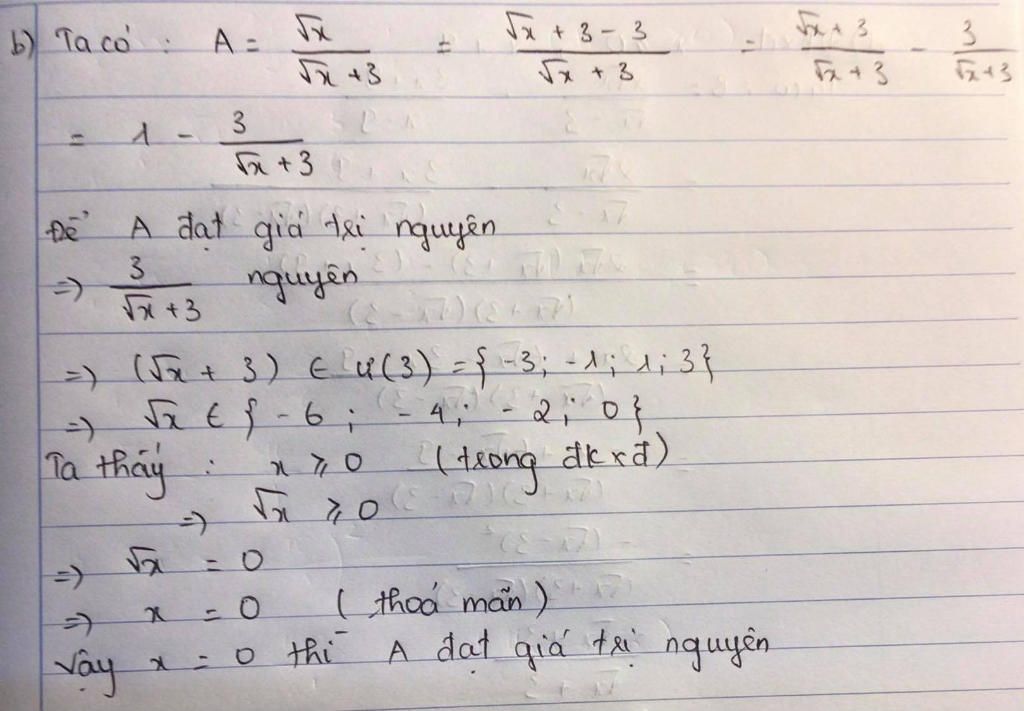 b) Ta có : A = √x / (√x + 3) = (√x + 3 - 3) / (√x + 3) = (√x + 3) / (√x + 3) - 3 / (√x + 3)
= 1 - 3 / (√x + 3)
Để A đạt giá trị nguyên
=> 3 / (√x + 3) nguyên
=> (√x + 3) ∈ Ư(3) = { -3; -1; 1; 3 }
=> √x ∈ { -6 ; -4; -2; 0 }
Ta thấy : x ⩾ 0 (trong đkxđ)
=> √x ⩾ 0
=> √x = 0
=> x = 0 (thoả mãn)
Vậy x = 0 thì A đạt giá trị nguyên